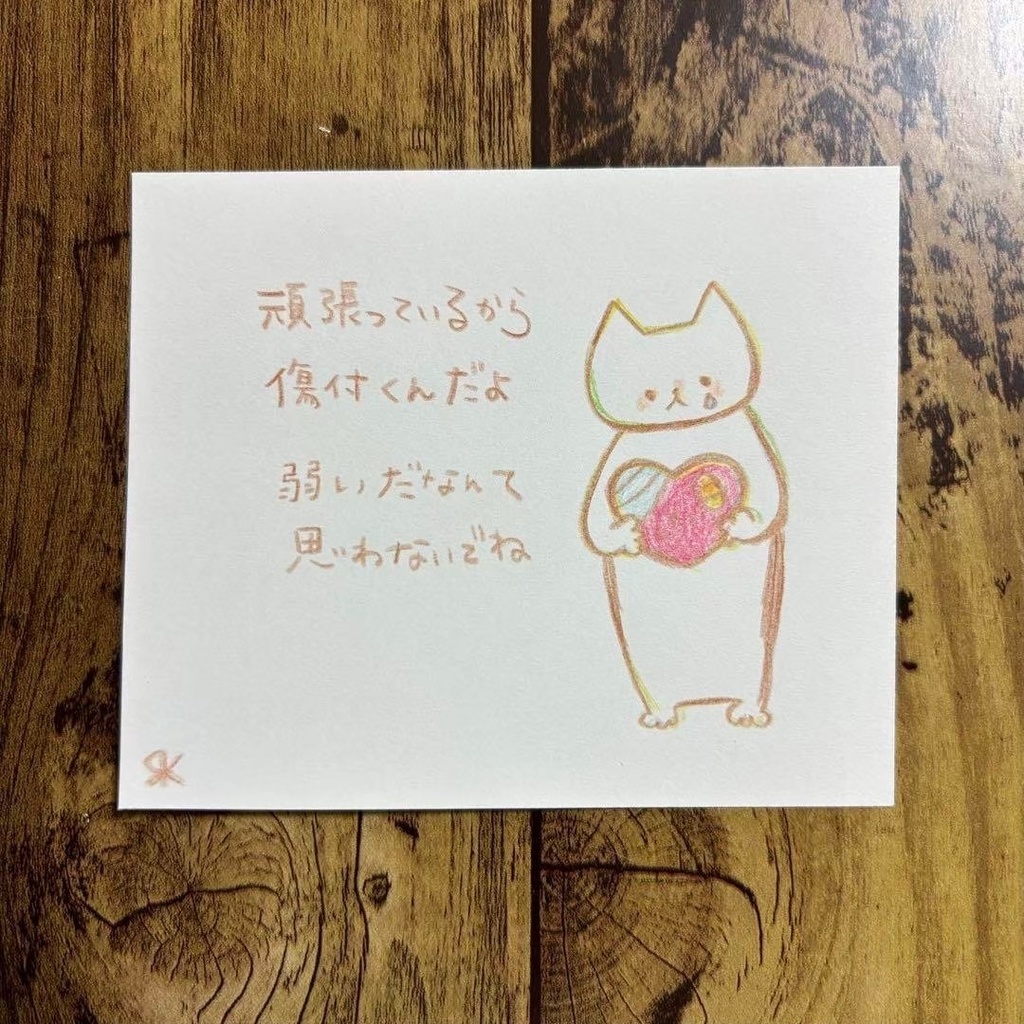 頑張っているから
傷付くんだよ
弱いだなんて
思わないでね